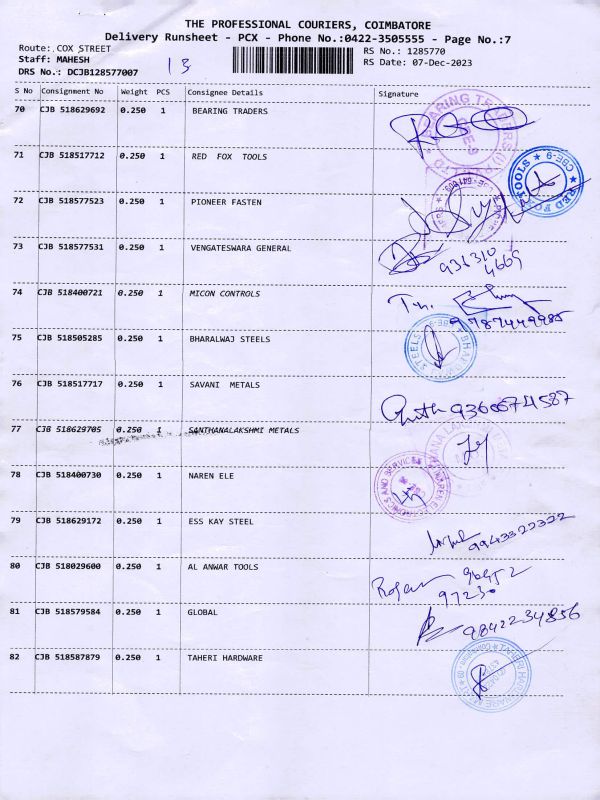 THE PROFESSIONAL COURIERS, COIMBATORE
Delivery Runsheet - PCX - Phone No.:0422-3505555 - Page No.:7
Route: COX STREET
RS No.: 1285770
Staff: MAHESH
13
RS Date: 07-Dec-2023
DRS No.: DCJB128577007
S No Consignment No Weight PCS Consignee Details Signature
70 CJB 518629692 0.250 1 BEARING TRADERS
71 CJB 518517712 0.250 1 RED FOX TOOLS
72 CJB 518577523 0.250 1 PIONEER FASTEN
73 CJB 518577531 0.250 1 VENGATESWARA GENERAL
936310
4669
74 CJB 518400721 0.250 1 MICON CONTROLS
9787449985
75 CJB 518505285 0.250 1 BHARALWAJ STEELS
76 CJB 518517717 0.250 1 SAVANI METALS
9360674587
77 CJB 518629705 0.250 1 SANTHANALAKSHMI METALS
78 CJB 518400730 0.250 1 NAREN ELE
79 CJB 518629172 0.250 1 ESS KAY STEEL
9943322322
80 CJB 518029600 0.250 1 AL ANWAR TOOLS
97230
81 CJB 518579584 0.250 1 GLOBAL
9842234856
82 CJB 518587879 0.250 1 TAHERI HARDWARE